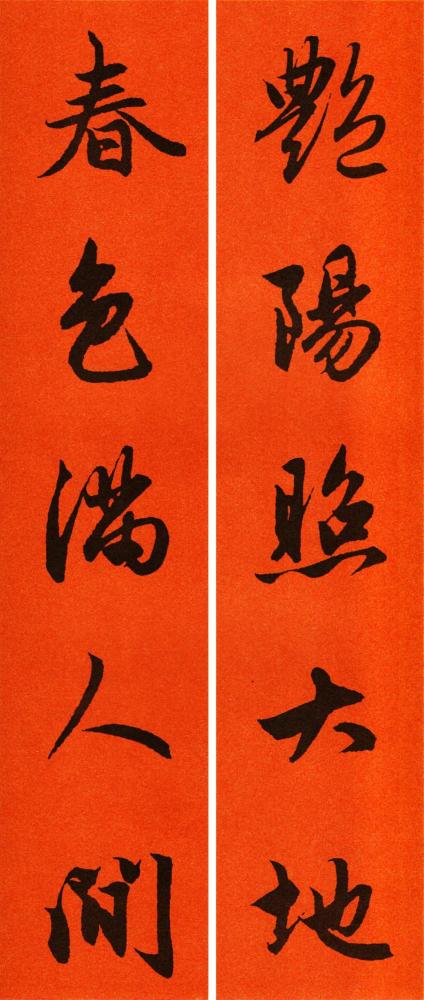 艷陽照大地
春色满人間